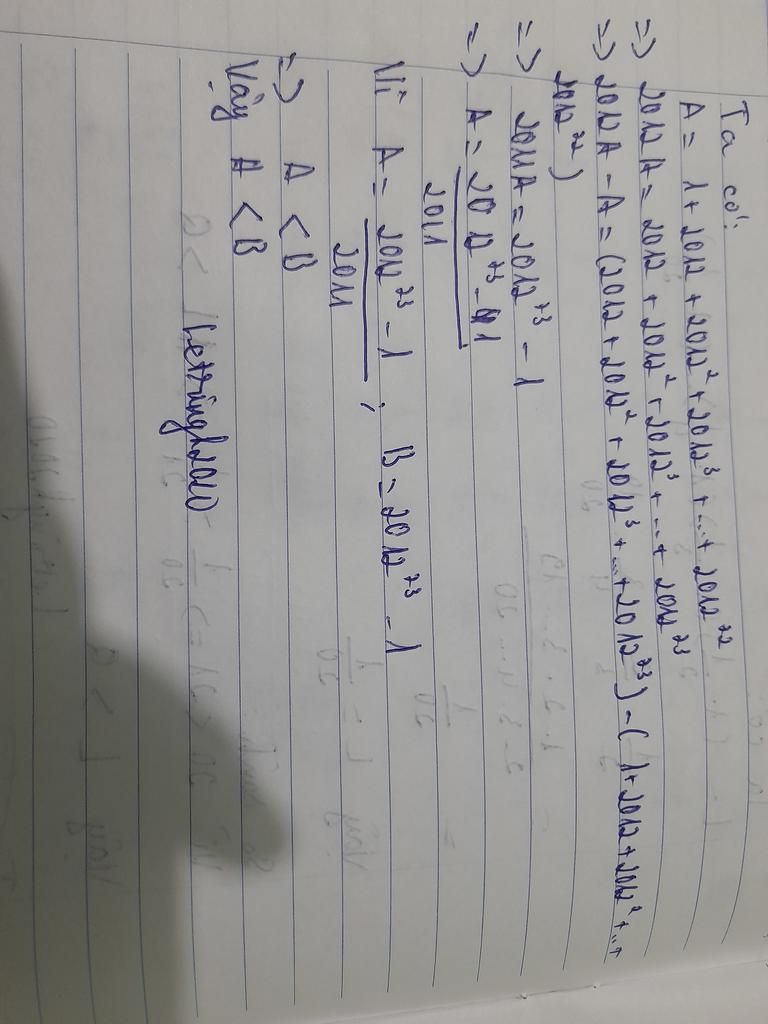 Ta có:
A = 1 + 2012 + 2012² + 2012³ + ... + 2012⁷²
=> 2012A = 2012 + 2012² + 2012³ + ... + 2012⁷³
=> 2012A - A = (2012 + 2012² + 2012³ + ... + 2012⁷³) - (1 + 2012 + 2012² + ... +
2012⁷²)
=> 2011A = 2012⁷³ - 1
=> A = 2012⁷³ - 1
2011
Vì A = 2012⁷³ - 1 ; B = 2012⁷³ - 1
2011
=> A < B
Vậy A < B